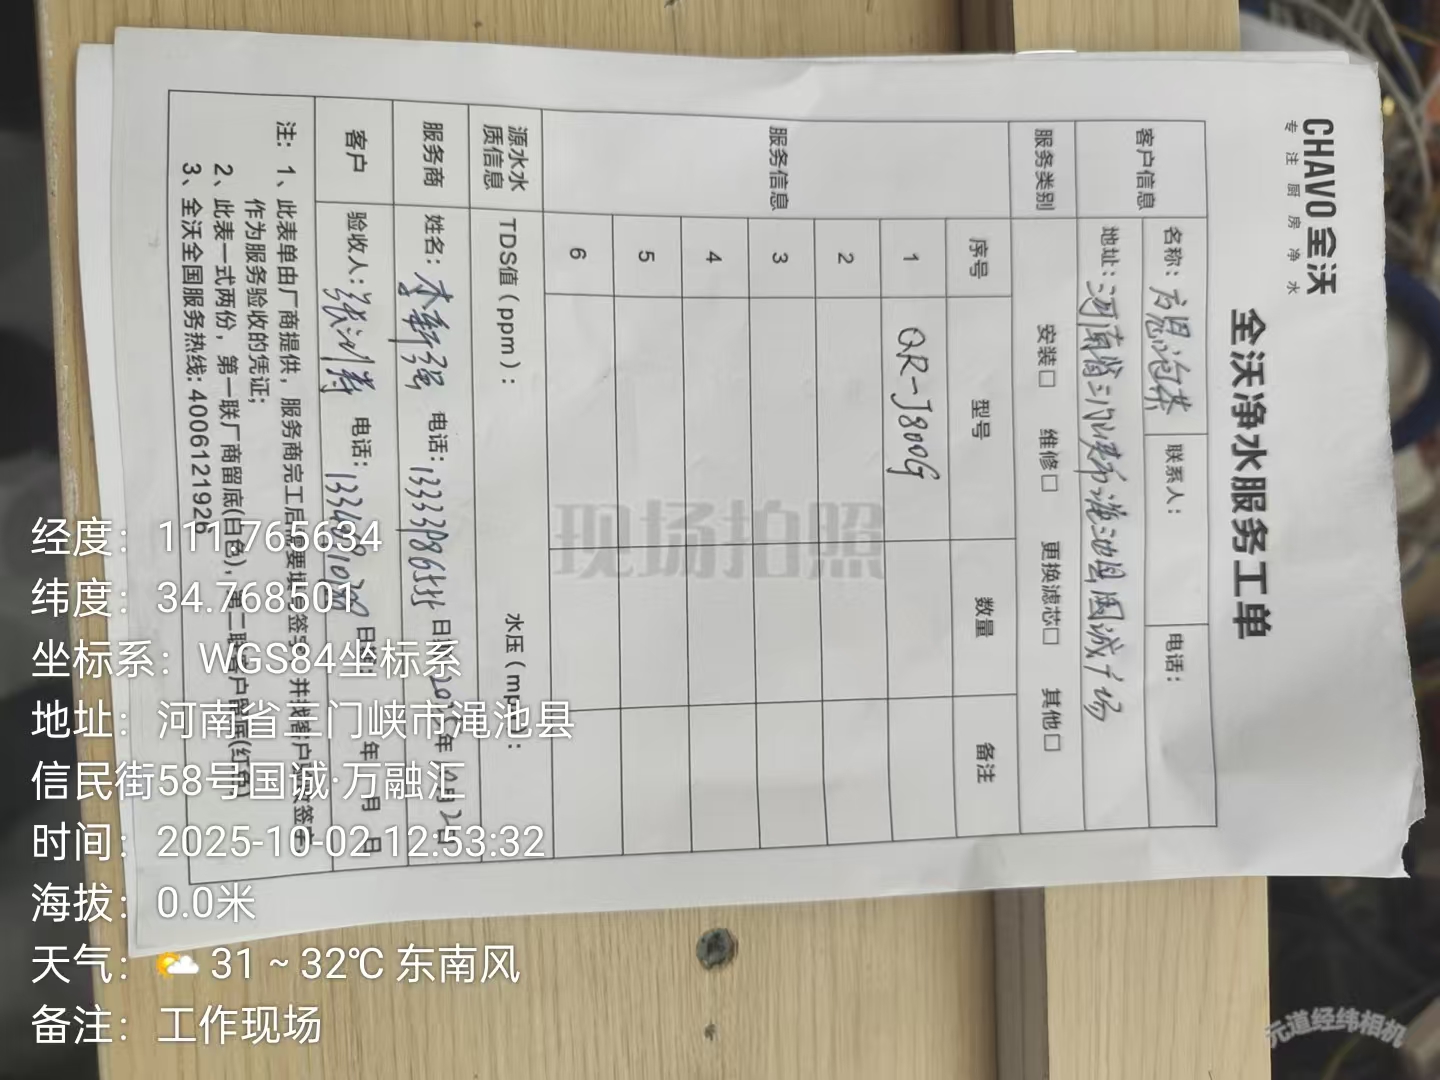 CHAVO全沃
专注厨房净水
全沃净水服务工单
客户信息 名称： 联系人： 电话：
地址：河南省三门峡市渑池县国诚广场
服务类别 安装□ 维修□ 更换滤芯□ 其他□
服务信息 序号 型号 数量 备注
1 QR-J800G
2
3
4
5
6
源水水质信息 TDS值（ppm）： 水压（mp
服务商 姓名： 电话： 年10月2日
客户 验收人： 电话： 年 月 日
注：1、此表单由厂商提供，服务商完工后
作为服务验收的凭证；
2、此表一式两份，第一联厂商留底(白色)，第二联客户留底(红色)
3、全沃全国服务热线：4006121926
现场拍照
经度：111.765634
纬度：34.768501
坐标系：WGS84坐标系
地址：河南省三门峡市渑池县
信民街58号国诚·万融汇
时间：2025-10-02 12:53:32
海拔：0.0米
天气：31 ~ 32℃ 东南风
备注：工作现场
元道经纬相机